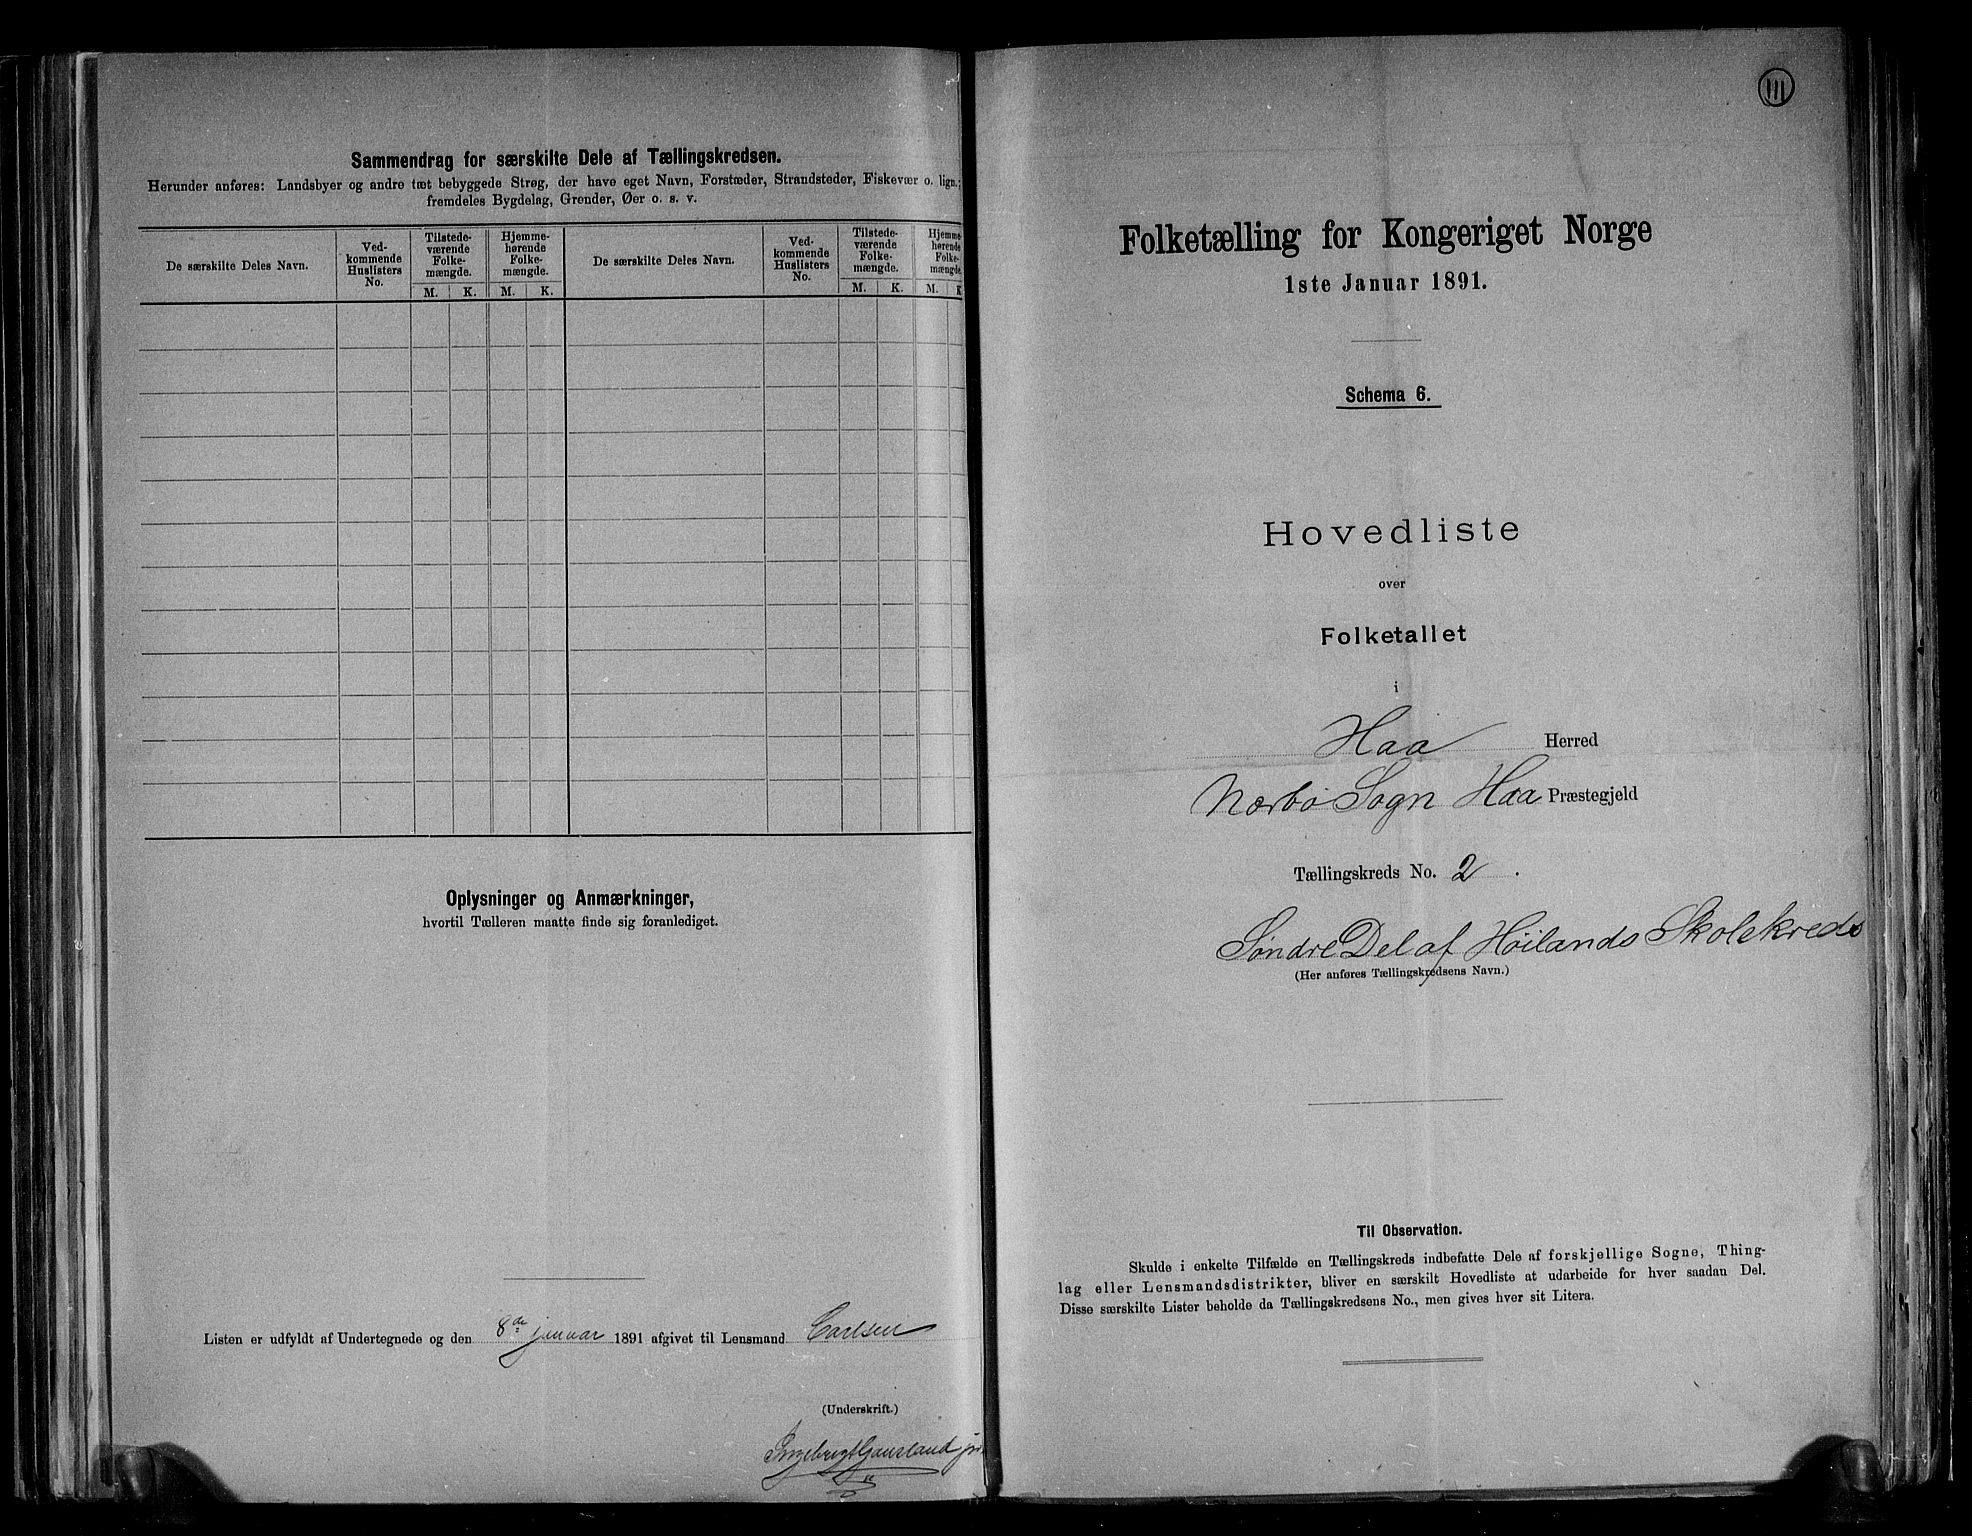 Sammendrag for særskilte Dele af Tællingskredsen.
Herunder anføres: Landsbyer og andre tæt bebyggede Strøg, der have eget Navn, Forstæder, Strandsteder, Fiskevær o. lign.;
fremdeles Bygdelag, Grender, Øer o. s. v.
De særskilte Deles Navn.
Ved-
kommende
Huslisters
No.
Tilstede-
værende
Folke-
mængde.
Hjemme-
hørende
Folke-
mængde.
M. K. M. K.
De særskilte Deles Navn.
Ved-
kommende
Huslisters
No.
Tilstede-
værende
Folke-
mængde.
Hjemme-
hørende
Folke-
mængde.
M. K. M. K
Oplysninger og Anmærkninger,
hvortil Tælleren maatte finde sig foranlediget.
Listen er udfyldt af Undertegnede og den 8de januar 1891 afgivet til Lensmand Carlsen
(Underskrift.)
Ingebregt Gausland jr.
111
Folketælling for Kongeriget Norge
1ste Januar 1891.
Schema 6.
Hovedliste
over
Folketallet
i
Haa Herred
Nærbø Sogn Haa Præstegjeld
Tællingskreds No. 2.
Søndre Del af Høilands Skolekreds
(Her anføres Tællingskredsens Navn.)
Til Observation.
Skulde i enkelte Tilfælde en Tællingskreds indbefatte Dele af forskjellige Sogne, Thing-
lag eller Lensmandsdistrikter, bliver en særskilt Hovedliste at udarbeide for hver saadan Del.
Disse særskilte Lister beholde da Tællingskredsens No., men gives hver sit Litera.